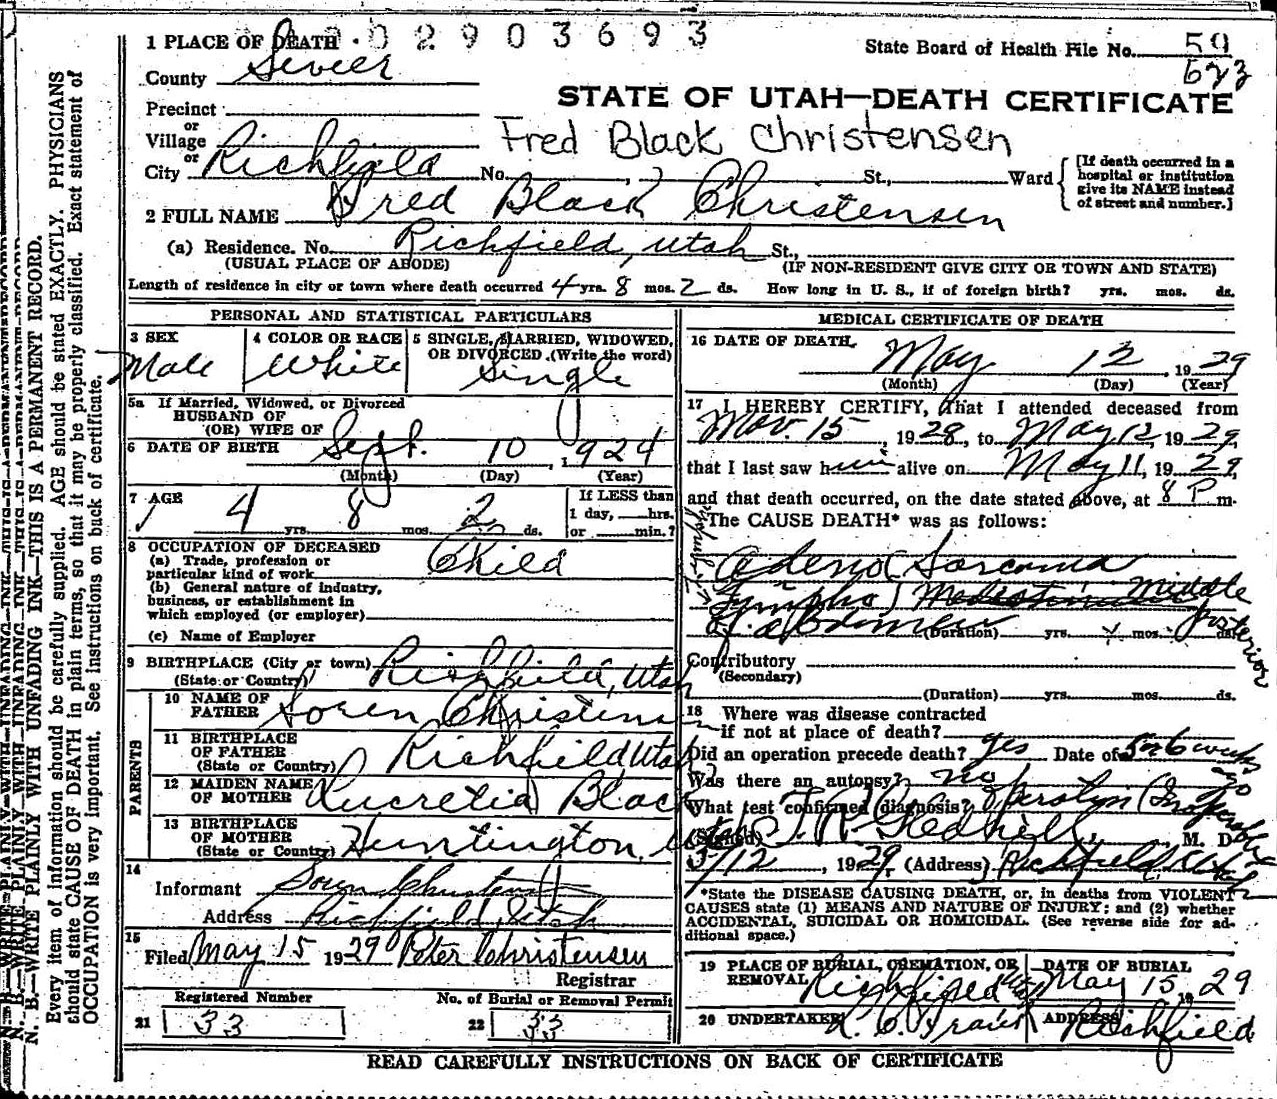 1 PLACE OF DEATH · 0 2 9 0 3 6 9 3
State Board of Health File No. 59
623
County Sevier
STATE OF UTAH—DEATH CERTIFICATE
Precinct
or
Village
Fred Black Christensen
or
City Richfield No. , St., Ward
[If death occurred in a hospital or institution give its NAME instead of street and number.]
2 FULL NAME Fred Black Christensen
(a) Residence. No. Richfield, Utah St.,
(USUAL PLACE OF ABODE) (IF NON-RESIDENT GIVE CITY OR TOWN AND STATE)
Length of residence in city or town where death occurred 4 yrs. 8 mos. 2 ds. How long in U. S., if of foreign birth? yrs. mos. ds.
PERSONAL AND STATISTICAL PARTICULARS
3 SEX Male
4 COLOR OR RACE White
5 SINGLE, MARRIED, WIDOWED, OR DIVORCED. (Write the word) Single
5a If Married, Widowed, or Divorced
HUSBAND OF
(OR) WIFE OF
6 DATE OF BIRTH Sept. 10, 1924
(Month) (Day) (Year)
7 AGE 4 yrs. 8 mos. 2 ds.
If LESS than
1 day, hrs.
or min.?
8 OCCUPATION OF DECEASED
(a) Trade, profession or
particular kind of work Child
(b) General nature of industry,
business, or establishment in
which employed (or employer)
(c) Name of Employer
9 BIRTHPLACE (City or town) Richfield, Utah
(State or Country)
PARENTS
10 NAME OF FATHER Soren Christensen
11 BIRTHPLACE OF FATHER Richfield, Utah
(State or Country)
12 MAIDEN NAME OF MOTHER Lucretia Black
13 BIRTHPLACE OF MOTHER Huntington,
(State or Country)
14
Informant Soren Christensen
Address Richfield, Utah
15
Filed May 15 1929 Peter Christensen
Registrar
Registered Number
21 33
No. of Burial or Removal Permit
22 33
MEDICAL CERTIFICATE OF DEATH
16 DATE OF DEATH, May 12, 1929
(Month) (Day) (Year)
17 I HEREBY CERTIFY, that I attended deceased from
Nov. 15, 1928, to May 12, 1929,
that I last saw him alive on May 11, 1929,
and that death occurred, on the date stated above, at 8 P m.
The CAUSE DEATH* was as follows:
Adeno (Sarcoma
Lympho) Middle
of abdomen posterior
(Duration) yrs. mos. ds.
Contributory
(Secondary)
(Duration) yrs. mos. ds.
18 Where was disease contracted
if not at place of death?
Did an operation precede death? yes Date of 5 or 6 weeks ago
Was there an autopsy? no
What test confirmed diagnosis? Operation (Inoperable
(Signed) M. D.
5/12, 1929. (Address) Richfield, Utah
*State the DISEASE CAUSING DEATH, or, in deaths from VIOLENT
CAUSES state (1) MEANS AND NATURE OF INJURY; and (2) whether
ACCIDENTAL, SUICIDAL OR HOMICIDAL. (See reverse side for ad-
ditional space.)
19 PLACE OF BURIAL, CREMATION, OR REMOVAL Richfield Utah
DATE OF BURIAL May 15, 1929
20 UNDERTAKER
ADDRESS Richfield
READ CAREFULLY INSTRUCTIONS ON BACK OF CERTIFICATE
N. B.—WRITE PLAINLY WITH UNFADING INK—THIS IS A PERMANENT RECORD.
Every item of information should be carefully supplied. AGE should be stated EXACTLY. PHYSICIANS
should state CAUSE OF DEATH in plain terms, so that it may be properly classified. Exact statement of
OCCUPATION is very important. See instructions on back of certificate.